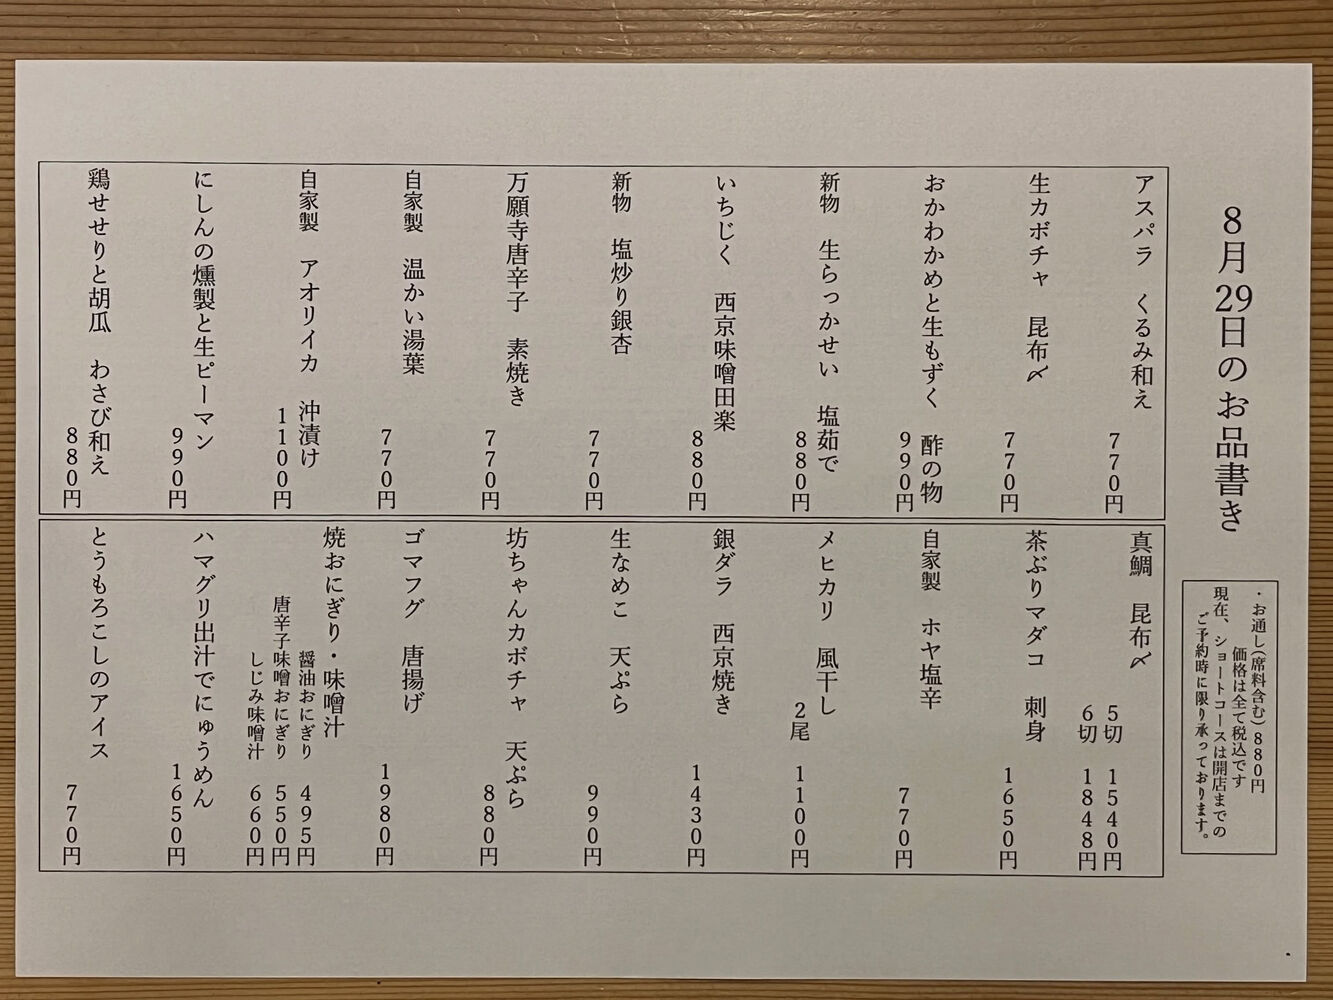 8月29日のお品書き
・お通し(席料含む)880円
価格は全て税込です
現在、ショートコースは開店までの
ご予約時に限り承っております。
アスパラ　くるみ和え
770円
生カボチャ　昆布〆
770円
おかわかめと生もずく　酢の物
990円
新物　生らっかせい　塩茹で
880円
いちじく　西京味噌田楽
880円
新物　塩炒り銀杏
770円
万願寺唐辛子　素焼き
770円
自家製　温かい湯葉
770円
自家製　アオリイカ　沖漬け
1100円
にしんの燻製と生ピーマン
990円
鶏せせりと胡瓜　わさび和え
880円
真鯛　昆布〆
5切　1540円
6切　1848円
茶ぶりマダコ　刺身
1650円
自家製　ホヤ塩辛
770円
メヒカリ　風干し
2尾　1100円
銀ダラ　西京焼き
1430円
生なめこ　天ぷら
990円
坊ちゃんカボチャ　天ぷら
880円
ゴマフグ　唐揚げ
1980円
焼おにぎり・味噌汁
醤油おにぎり　495円
唐辛子味噌おにぎり　550円
しじみ味噌汁　660円
ハマグリ出汁でにゅうめん
1650円
とうもろこしのアイス
770円